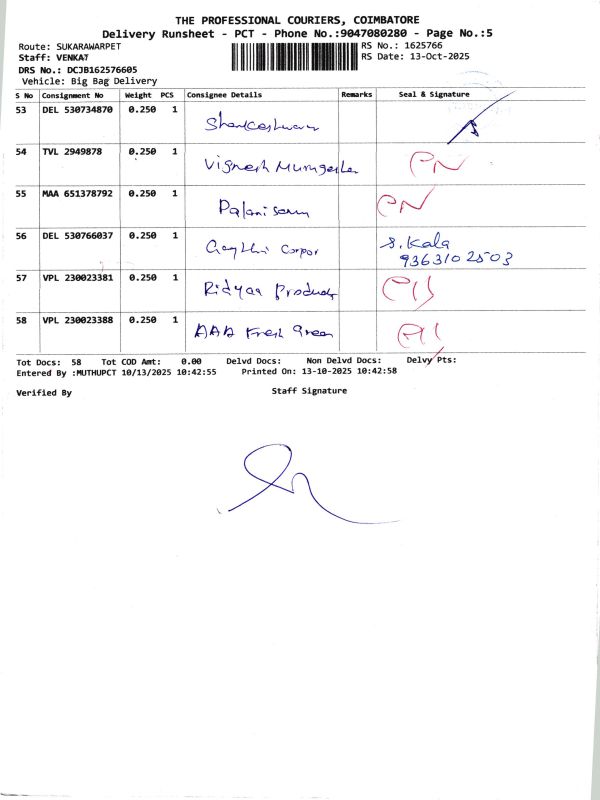 THE PROFESSIONAL COURIERS, COIMBATORE
Delivery Runsheet - PCT - Phone No.:9047080280 - Page No.:5
Route: SUKARAWARPET
RS No.: 1625766
Staff: VENKAT
RS Date: 13-Oct-2025
DRS No.: DCJB162576605
Vehicle: Big Bag Delivery
S No Consignment No Weight PCS Consignee Details Remarks Seal & Signature
53 DEL 530734870 0.250 1 Shankeshwar
54 TVL 2949878 0.250 1 Vignesh PN
55 MAA 651378792 0.250 1 Palanisamy PN
56 DEL 530766037 0.250 1 Corpor S. Kala
9363102503
57 VPL 230023381 0.250 1 Ridyaa Products
58 VPL 230023388 0.250 1 AAA Fresh Green
Tot Docs: 58 Tot COD Amt: 0.00 Delvd Docs: Non Delvd Docs: Delvy Pts:
Entered By :MUTHUPCT 10/13/2025 10:42:55 Printed On: 13-10-2025 10:42:58
Verified By Staff Signature